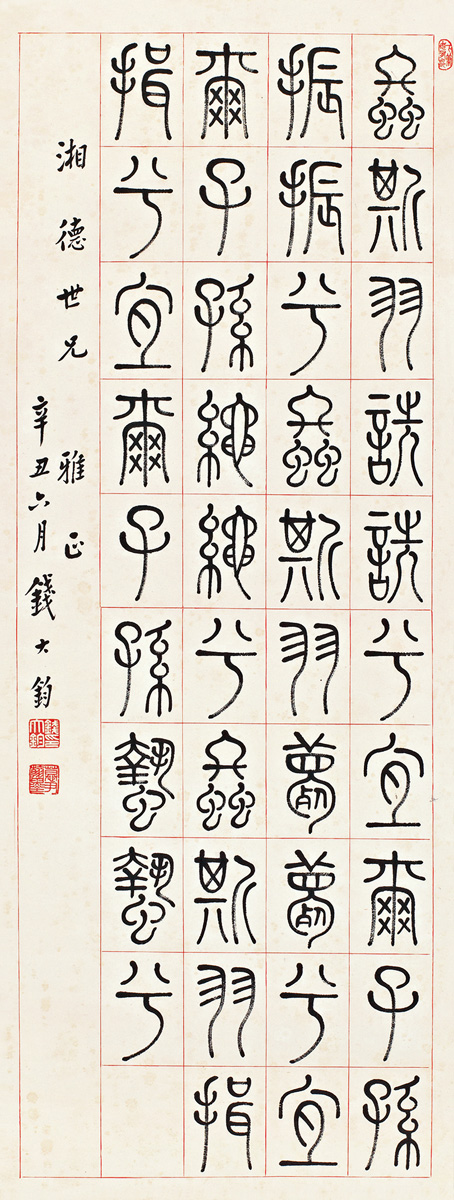 螽斯羽詵詵兮宜爾子孫
振振兮螽斯羽薨薨兮宜
爾子孫繩繩兮螽斯羽揖
揖兮宜爾子孫蟄蟄兮
湘德世兄 雅正
辛丑六月 錢大鈞